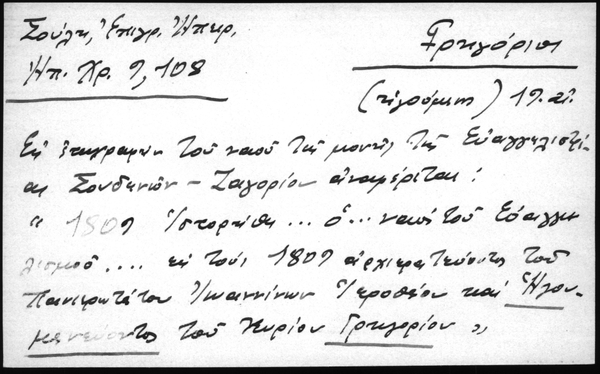 Σούλη, Ἐπιγρ. Ἠπειρ.
Ἠπ. Χρ. 9, 108
Γρηγόριος
(ἡγούμενος) 19. αἰ.
Εἰς ἐπιγραφὴν τοῦ ναοῦ τῆς μονῆς τῆς Εὐαγγελιστρί-
ας Σουδενῶν - Ζαγορίου ἀναφέρεται:
" 1809 Ἱστορήθη ... ὁ ... ναὸς τοῦ Εὐαγγε-
λισμοῦ .... εἰς τοὺς 1809 ἀρχιερατεύοντος τοῦ
Πανιερωτάτου Ἰωαννίνων Ἱεροθέου καὶ Ἡγου-
μενεύοντος τοῦ Κυρίου Γρηγορίου "